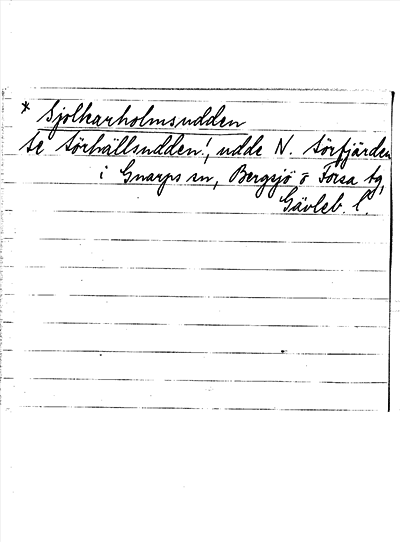 * Sjolkarholmsudden
se Sörhällsudden!, udde N. Sörfjärden
i Gnarps sn, Bergsjö o Forsa tg,
Gävleb. l.